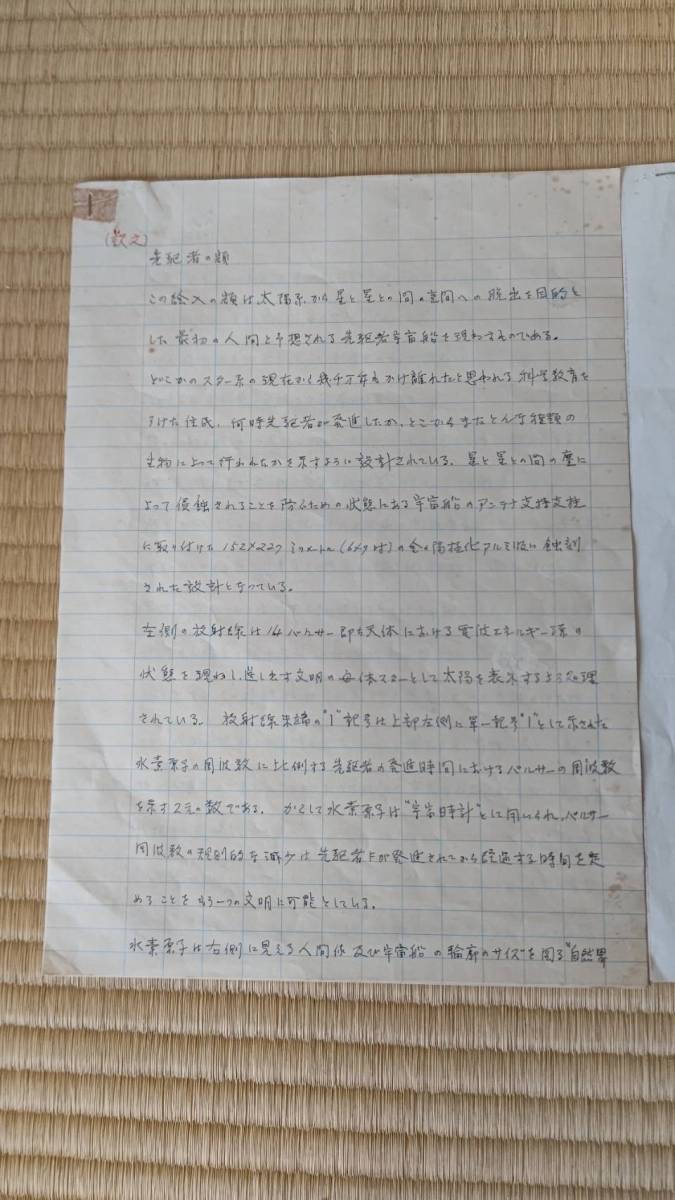 1
(訳文)
先駆者の額
この絵入の額は、太陽系から星と星との間の空間への脱出を目的と
した最初の人間上予想される先駆者宇宙船を現わすものである。
どこかのスター系の現在から幾千万年もかけ離れたと思われる科学教育を
うけた住民、何時先駆者が発進したか、どこからまたどんな種類の
生物によって行われたかを示すように設計されている。星と星との間の塵に
よって侵蝕されることを防ぐための状態にある宇宙船のアンテナ支持支柱
に取り付けた152×229ミリメートル(6×9吋)の金陽極化アルミ板に蝕刻
された設計となっている。
左側の放射線は14パルサー即ち天体における電波エネルギー源の
状態を現わし、進し出す文明の母体スターとして太陽を表示するよう処理
されている。放射線末端の"1"記号は上部左側に単一記号"1"として示された
水素原子の周波数に比例する先駆者の発進時間におけるパルサーの周波数
を示す2元の数である。かくして水素原子は"宇宙時計"として用いられ、パルサー
周波数の規則的な減少は先駆者Fが発進されてから経過する時間を定
めることをもう一つの文明に可能としている。
水素原子は右側に見える人間像及び宇宙船の輪廓のサイズを図る"自然界